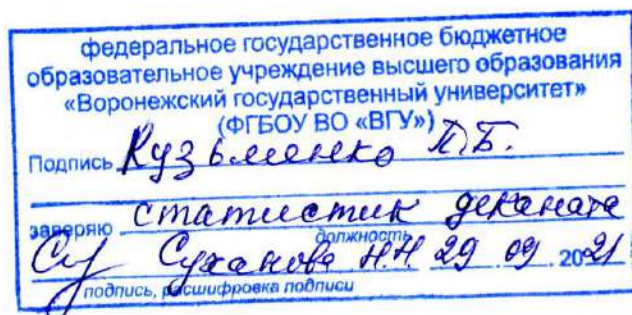 федеральное государственное бюджетное
образовательное учреждение высшего образования
«Воронежский государственный университет»
(ФГБОУ ВО «ВГУ»)
Подпись Кузьменко П.Б.
заверяю статистик деканата
должность
Суханова Н.Н. 29 09 2021
подпись, расшифровка подписи